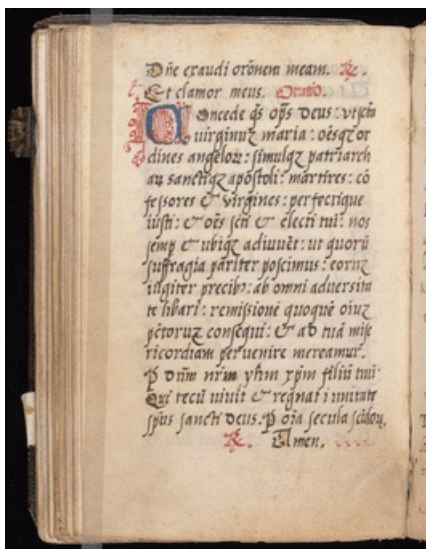 Dñe exaudi orõnem meam. ℟.
Et clamor meus. Oratio.
Concede q̃s op̃s deus: ut sc̃ta
uirginuz maria: oẽsqz or
dines angeloꝝ: simulqz patriarch
aꝝ sanctiqz apõstoli: martires: cõ
fessores & virgines: perfectique
iusti: & oẽs sc̃ti & electi tui: nos
semp & ubiqz adiuuẽt: ut quorũ
suffragia pariter poscimus: eoruz
iugiter precibꝫ: ab omni adversita
te libari: remissionẽ quoquẽ oĩuz
pc̃toruz consequi: & ad tuã mise
ricordiam pervenire mereamur.
P̱ dñm nr̃m yhm xp̃m filiũ tuũ
Qui tecũ uiuit & regnat i unitate
sp̃us sancti deus. P̱ oĩa secula sc̃loꝝ.
℟. Amen.